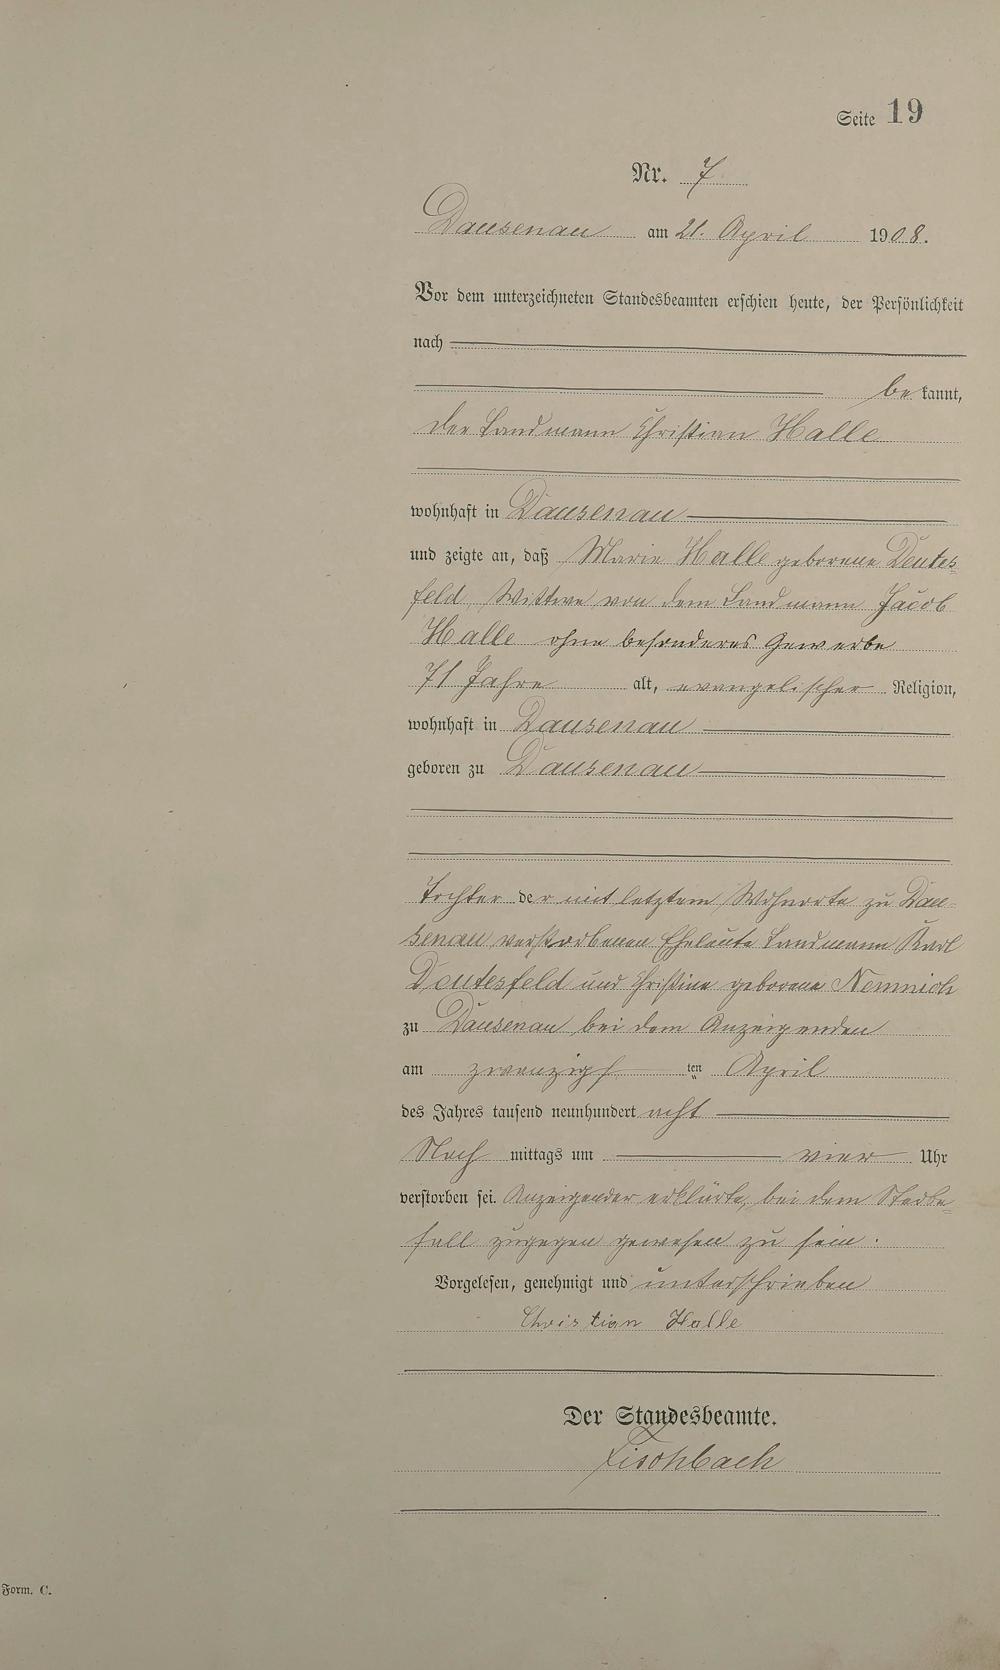 Seite 19
Nr. 7
Dausenau am 21. April 1908.
Vor dem unterzeichneten Standesbeamten erschien heute, der Persönlichkeit
nach
bekannt,
der Landmann Christian Halle
wohnhaft in Dausenau
und zeigte an, daß Marie Halle geborene Deutes-
feld, Wittwe von dem Landmann Jacob
Halle ohne besonderes Gewerbe
71 Jahre alt, evangelischer Religion,
wohnhaft in Dausenau
geboren zu Dausenau
Tochter der mit letztem Wohnorte zu Dau-
senau verstorbenen Eheleute Landmann Karl
Deutesfeld und Christine geborene Nemnich
zu Dausenau bei dem Anzeigenden
am zwanzigsten April
des Jahres tausend neunhundert acht
Nach mittags um vier Uhr
verstorben sei. Anzeigender erklärte, bei dem Sterbe-
fall zugegen gewesen zu sein.
Vorgelesen, genehmigt und unterschrieben
Christian Halle
Der Standesbeamte.
Fischbach
Form. C.